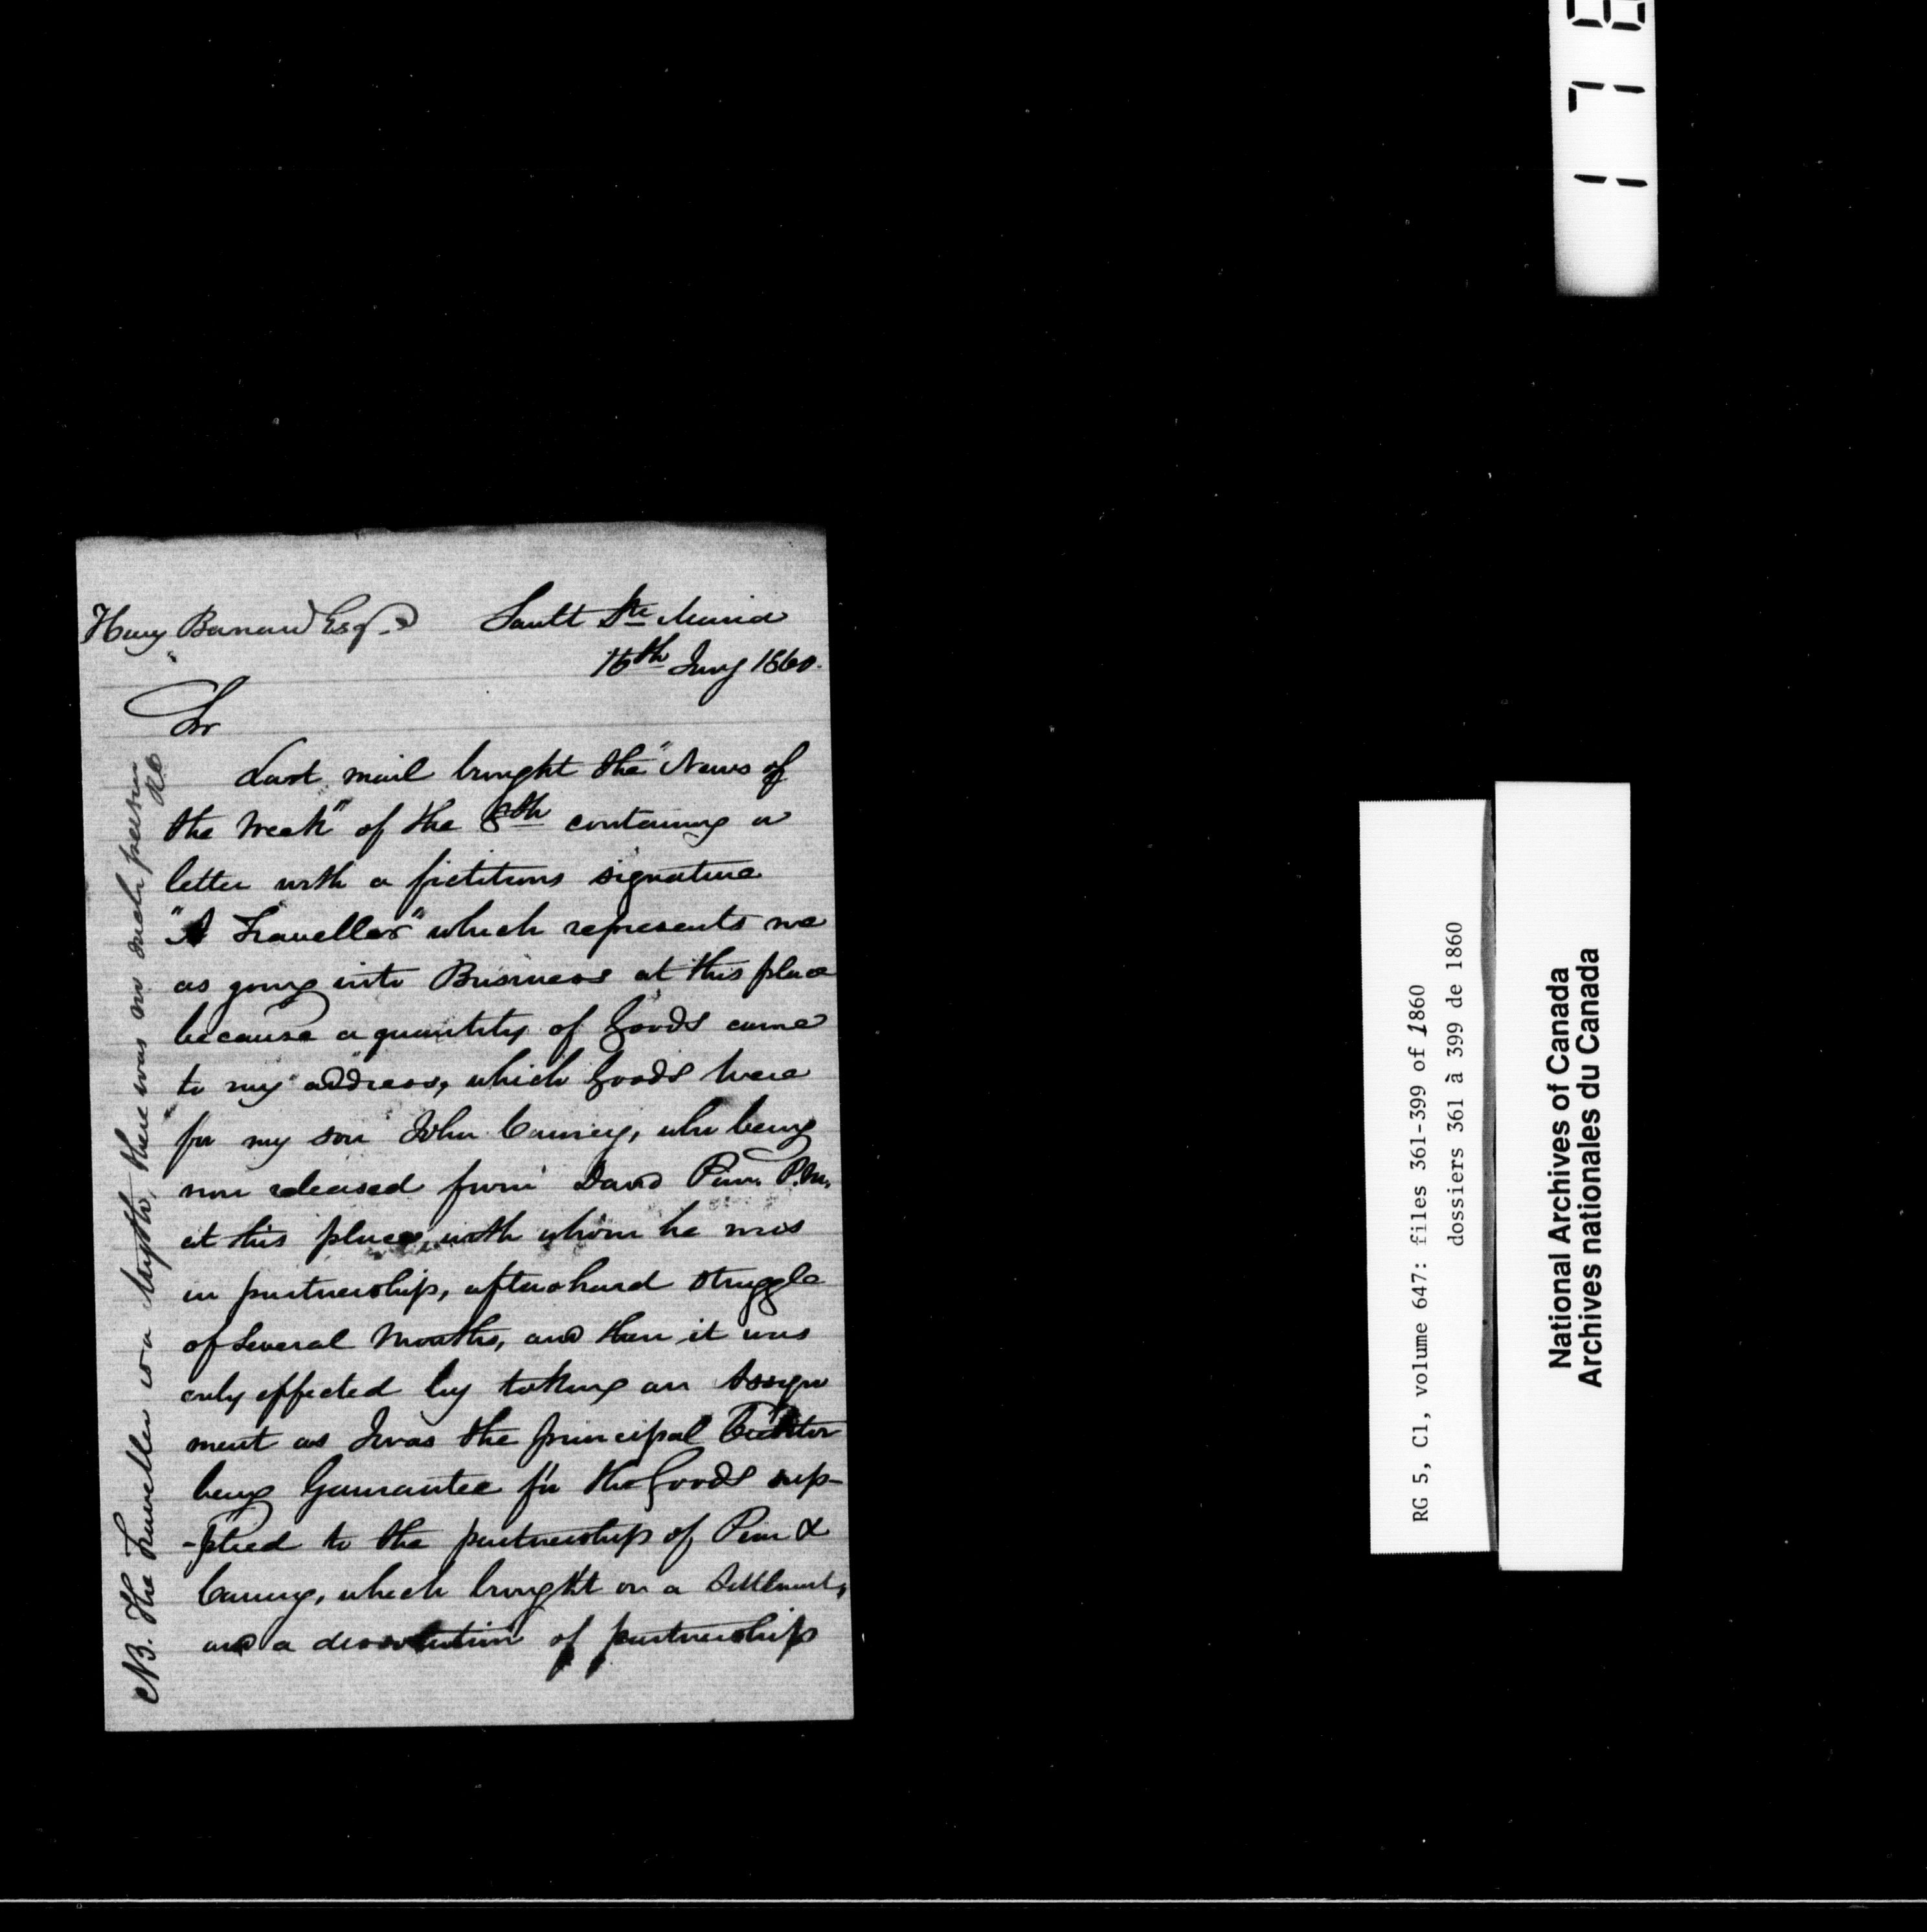 Henry Barnard Esq. Sault Ste Marie
16th Jany 1860.
Sir
Last mail brought the "News of
the Week" of the 8th containing a
letter with a fictitious signature
"A Traveller" which represents me
as going into Business at this place
because a quantity of Goods came
to my address, which Goods were
for my son John Carney, who being
now released from David Pim P.M.
at this place with whom he was
in partnership, after a hard struggle
of several Months, and then it was
only effected by taking an Assign
ment as I was the principal Creditor
being Gaurantee for the Goods sup-
-plied to the partnership of Pim &
Carney, which brought on a Settlement,
and a dissolution of partnership
NB. The Traveller is a Mythe, there was no such person
178
RG 5, C1, volume 647: files 361-399 of 1860
dossiers 361 à 399 de 1860
National Archives of Canada
Archives nationales du Canada